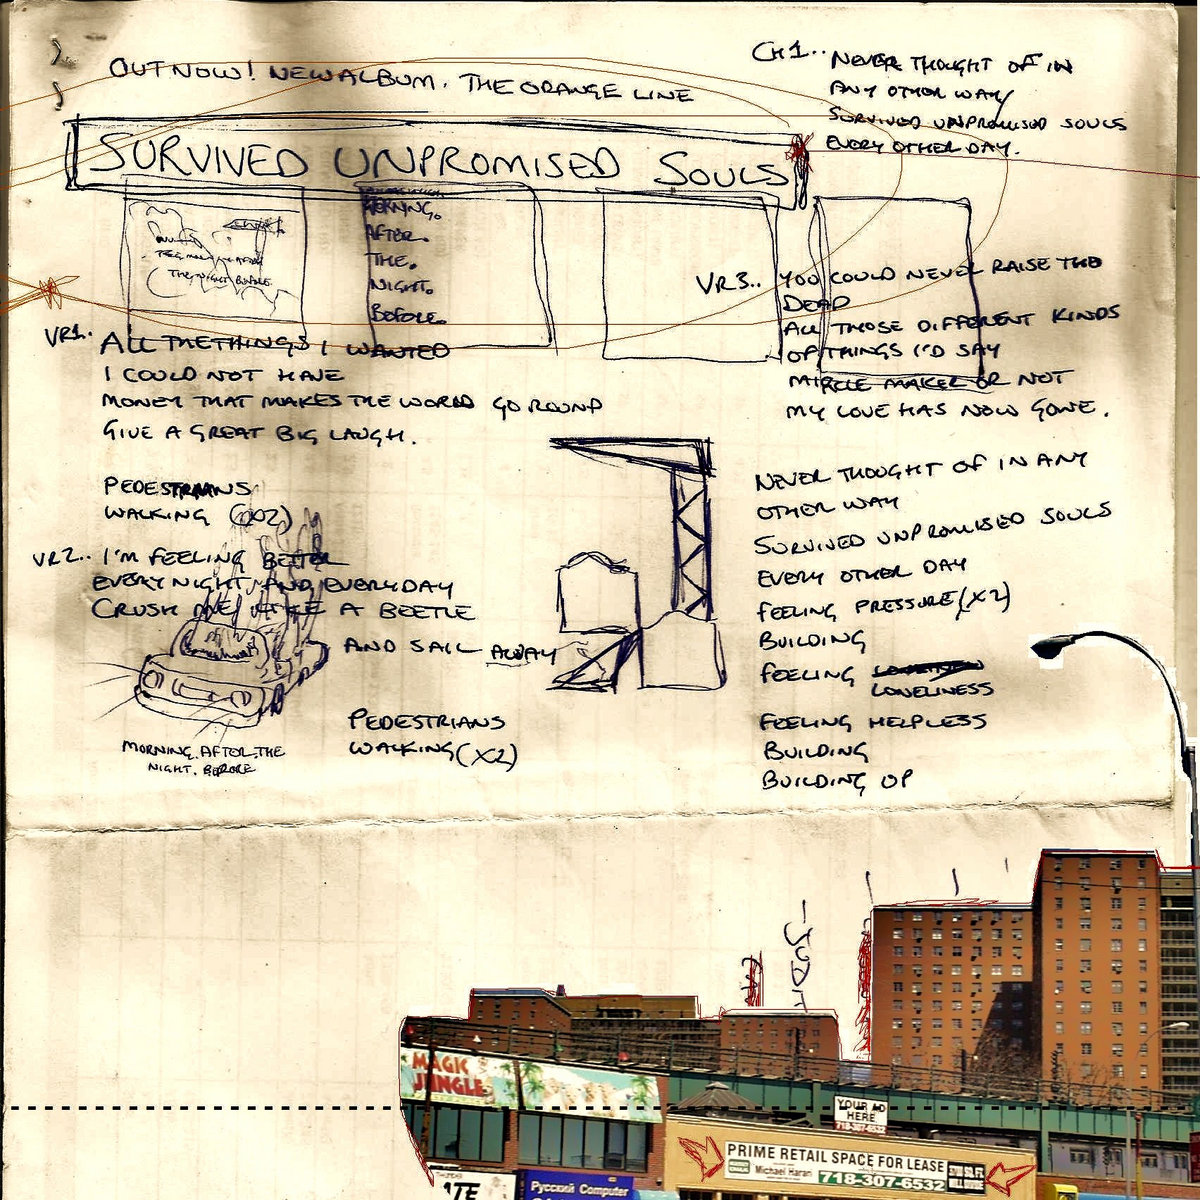 OUT NOW! NEW ALBUM. THE ORANGE LINE
SURVIVED UNPROMISED SOULS
CH1.. NEVER THOUGHT OF IN
ANY OTHER WAY
SURVIVED UNPROMISED SOULS
EVERY OTHER DAY.
THE NIGHT BEFORE
MORNING.
AFTER.
THE.
NIGHT.
BEFORE.
VR1. ALL THE THINGS I WANTED
I COULD NOT HAVE
MONEY THAT MAKES THE WORLD GO ROUND
GIVE A GREAT BIG LAUGH.
PEDESTRIANS
WALKING (X2)
VR2.. I'M FEELING BETTER
EVERY NIGHT AND EVERYDAY
CRUSH ME LIKE A BEETLE
AND SAIL AWAY
PEDESTRIANS
WALKING (X2)
MORNING. AFTER. THE
NIGHT. BEFORE
VR3.. YOU COULD NEVER RAISE THE
DEAD
ALL THOSE DIFFERENT KINDS
OF THINGS I'D SAY
MIRCLE MAKER OR NOT
MY LOVE HAS NOW GONE.
NEVER THOUGHT OF IN ANY
OTHER WAY
SURVIVED UNPROMISED SOULS
EVERY OTHER DAY
FEELING PRESSURE (X2)
BUILDING
FEELING
LONELINESS
FEELING HELPLESS
BUILDING
BUILDING UP
MAGIC
JUNGLE
YOUR AD
HERE
718-307-6532
PRIME RETAIL SPACE FOR LEASE
Michael Haran 718-307-6532
Русский Computer